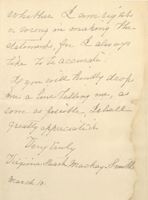 whether I am right
or wrong in making the
statement, for I always
like to be accurate.
If you will kindly drop
me a line telling me, as
soon as possible, I shall
greatly appreciate it.
Very truly
Virginia Marsh Mackay-Smith
March 10.